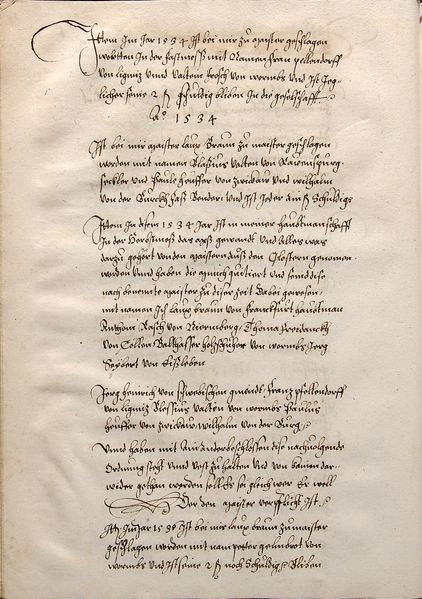 Ittem Im Jar 1534 Ist bei mir zu maister geschlagen
wortten In der fastmess mit Namen Frantz pfellendorff
von lignitz Unnd Valtein frosch von wormbs Und Ist Jeg-
licher seine 2 fl schuldig bliben In die geselschafft
Aō 1534
Ist bei mir maister laux Braun zu maister geschlagen
worden mit namen Blasius Valten von Rauenspurg
seckler Und Paule heuffer von zwickaw Und wilhalm
von der Burckh Fas Bender Und Ist Jeder am fl Schuldig
Ittem In disem 1534 Jar Ist in meiner hauptmanschafft
In der Herbstmess das gewandt Und Alles was
darzu gehort von den maistern auß den Clostern genomen
worden Und haben die quittiert Und seind dise
nach benente maister zu diser Zeit Dabei gewesen
mit namen Ich laux braun von Franckfurt hauptman
Anthoni Rasch von Nurmberg Thoma
von Collen Balthasser holtzschuher von wormbs Jerg
Seybert von Eißleben
Jerg heinrich von schwebischen gmendt Frantz pfellendorff
von lignitz Blessius Valten von wormbs Paulus
heuffer von zwickaw wilhalm von der Burg
Unnd haben mit Ain Ander beschlossen dise nachuolgende
Ordnung steht Unnd Vest zu halten Und von kainen dar-
wider gethan werden soll Er sei gleich wer Er well
Der den maister verpflicht Ist
Itt Im Jar 1536 Ist bei mir laux braun zu maister
geschlagen worden mit nam petter von
wormbs Und Ist seine 2 fl noch Schuldig Bliben